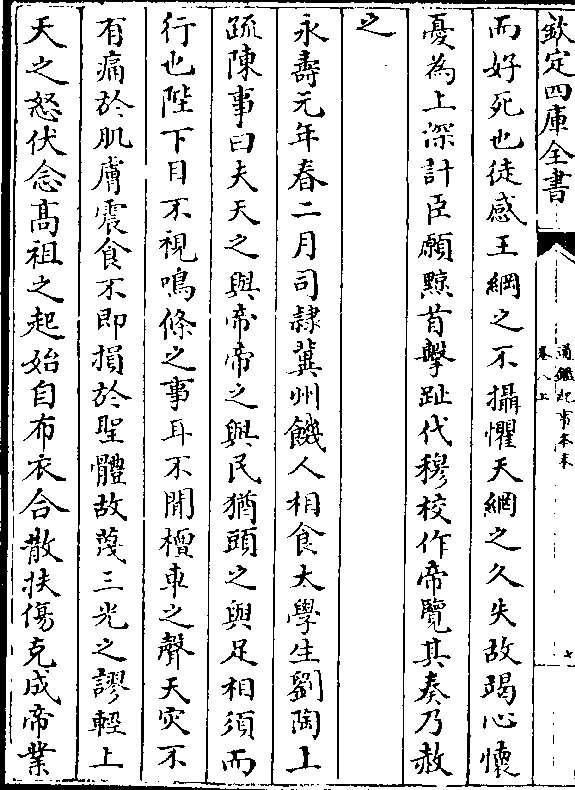 欽定四庫全書
通鑑紀事本末
卷八上
七
而好死也徒感王綱之不攝懼天綱之久失故竭心懷
憂為上深計臣願黥首擊趾代穆校作帝覽其奏乃赦
之
永壽元年春二月司隷冀州饑人相食太學生劉陶上
疏陳事曰夫天之與帝帝之與民猶頭之與足相須而
行也陛下目不視鳴條之事耳不聞檀車之聲天災不
有痛於肌膚震食不即損於聖體故蔑三光之謬輕上
天之怒伏念髙祖之起始自布衣合散扶傷克成帝業